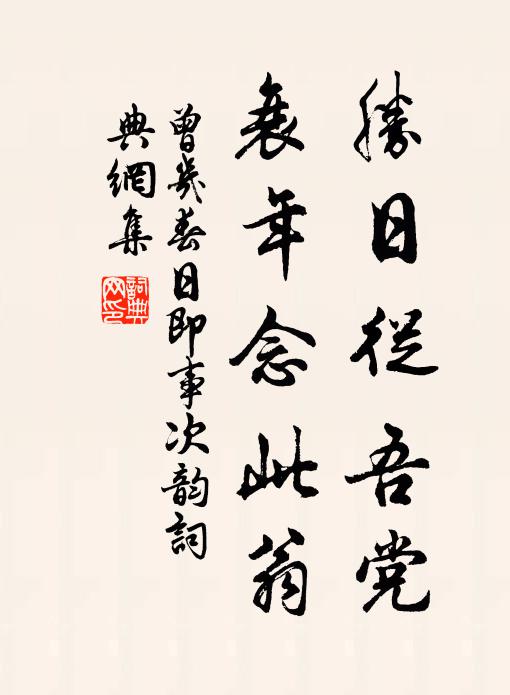 勝日從吾党
衰年念此翁
曾幾春日即事次韵詞
典網集
詞典网印